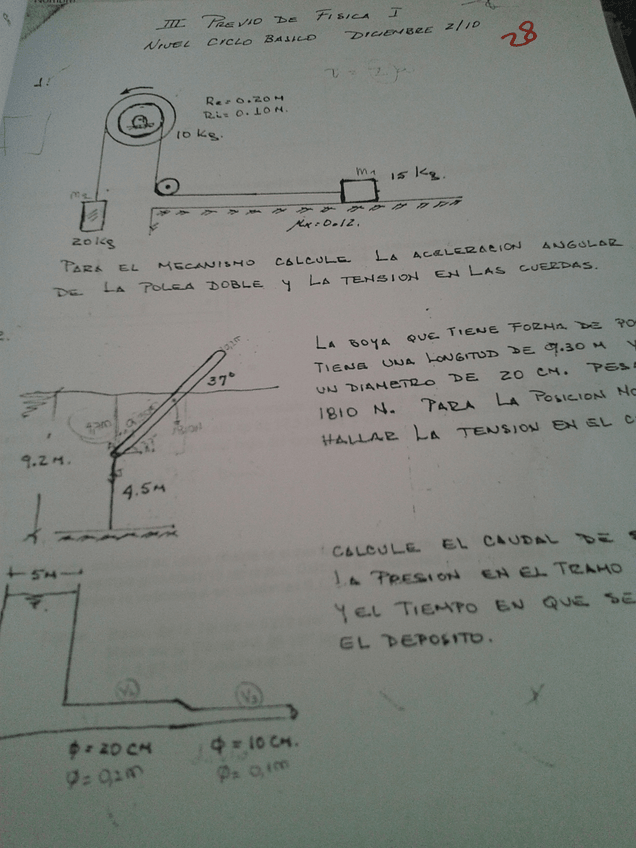 III PREVIO DE FISICA I
NIVEL CICLO BASICO DICIEMBRE 2/10
28
1.
Re = 0.20 M
Ri = 0.10 M.
10 Kg.
M1
15 Kg.
M2
20 Kg
μk = 0.12.
PARA EL MECANISMO CALCULE LA ACELERACION ANGULAR
DE LA POLEA DOBLE Y LA TENSION EN LAS CUERDAS.
LA BOYA QUE TIENE FORMA DE
TIENE UNA LONGITUD DE 9.30 M Y
UN DIAMETRO DE 20 CM.
1810 N. PARA LA POSICION
HALLAR LA TENSION EN EL
37°
4,7m
9.2 M.
4.5 M
CALCULE EL CAUDAL DE
LA PRESION EN EL TRAMO
Y EL TIEMPO EN QUE SE
EL DEPOSITO.
5 M
V1
V2
φ = 20 CM
φ = 10 CM.
φ = 0,2m
φ = 0,1m